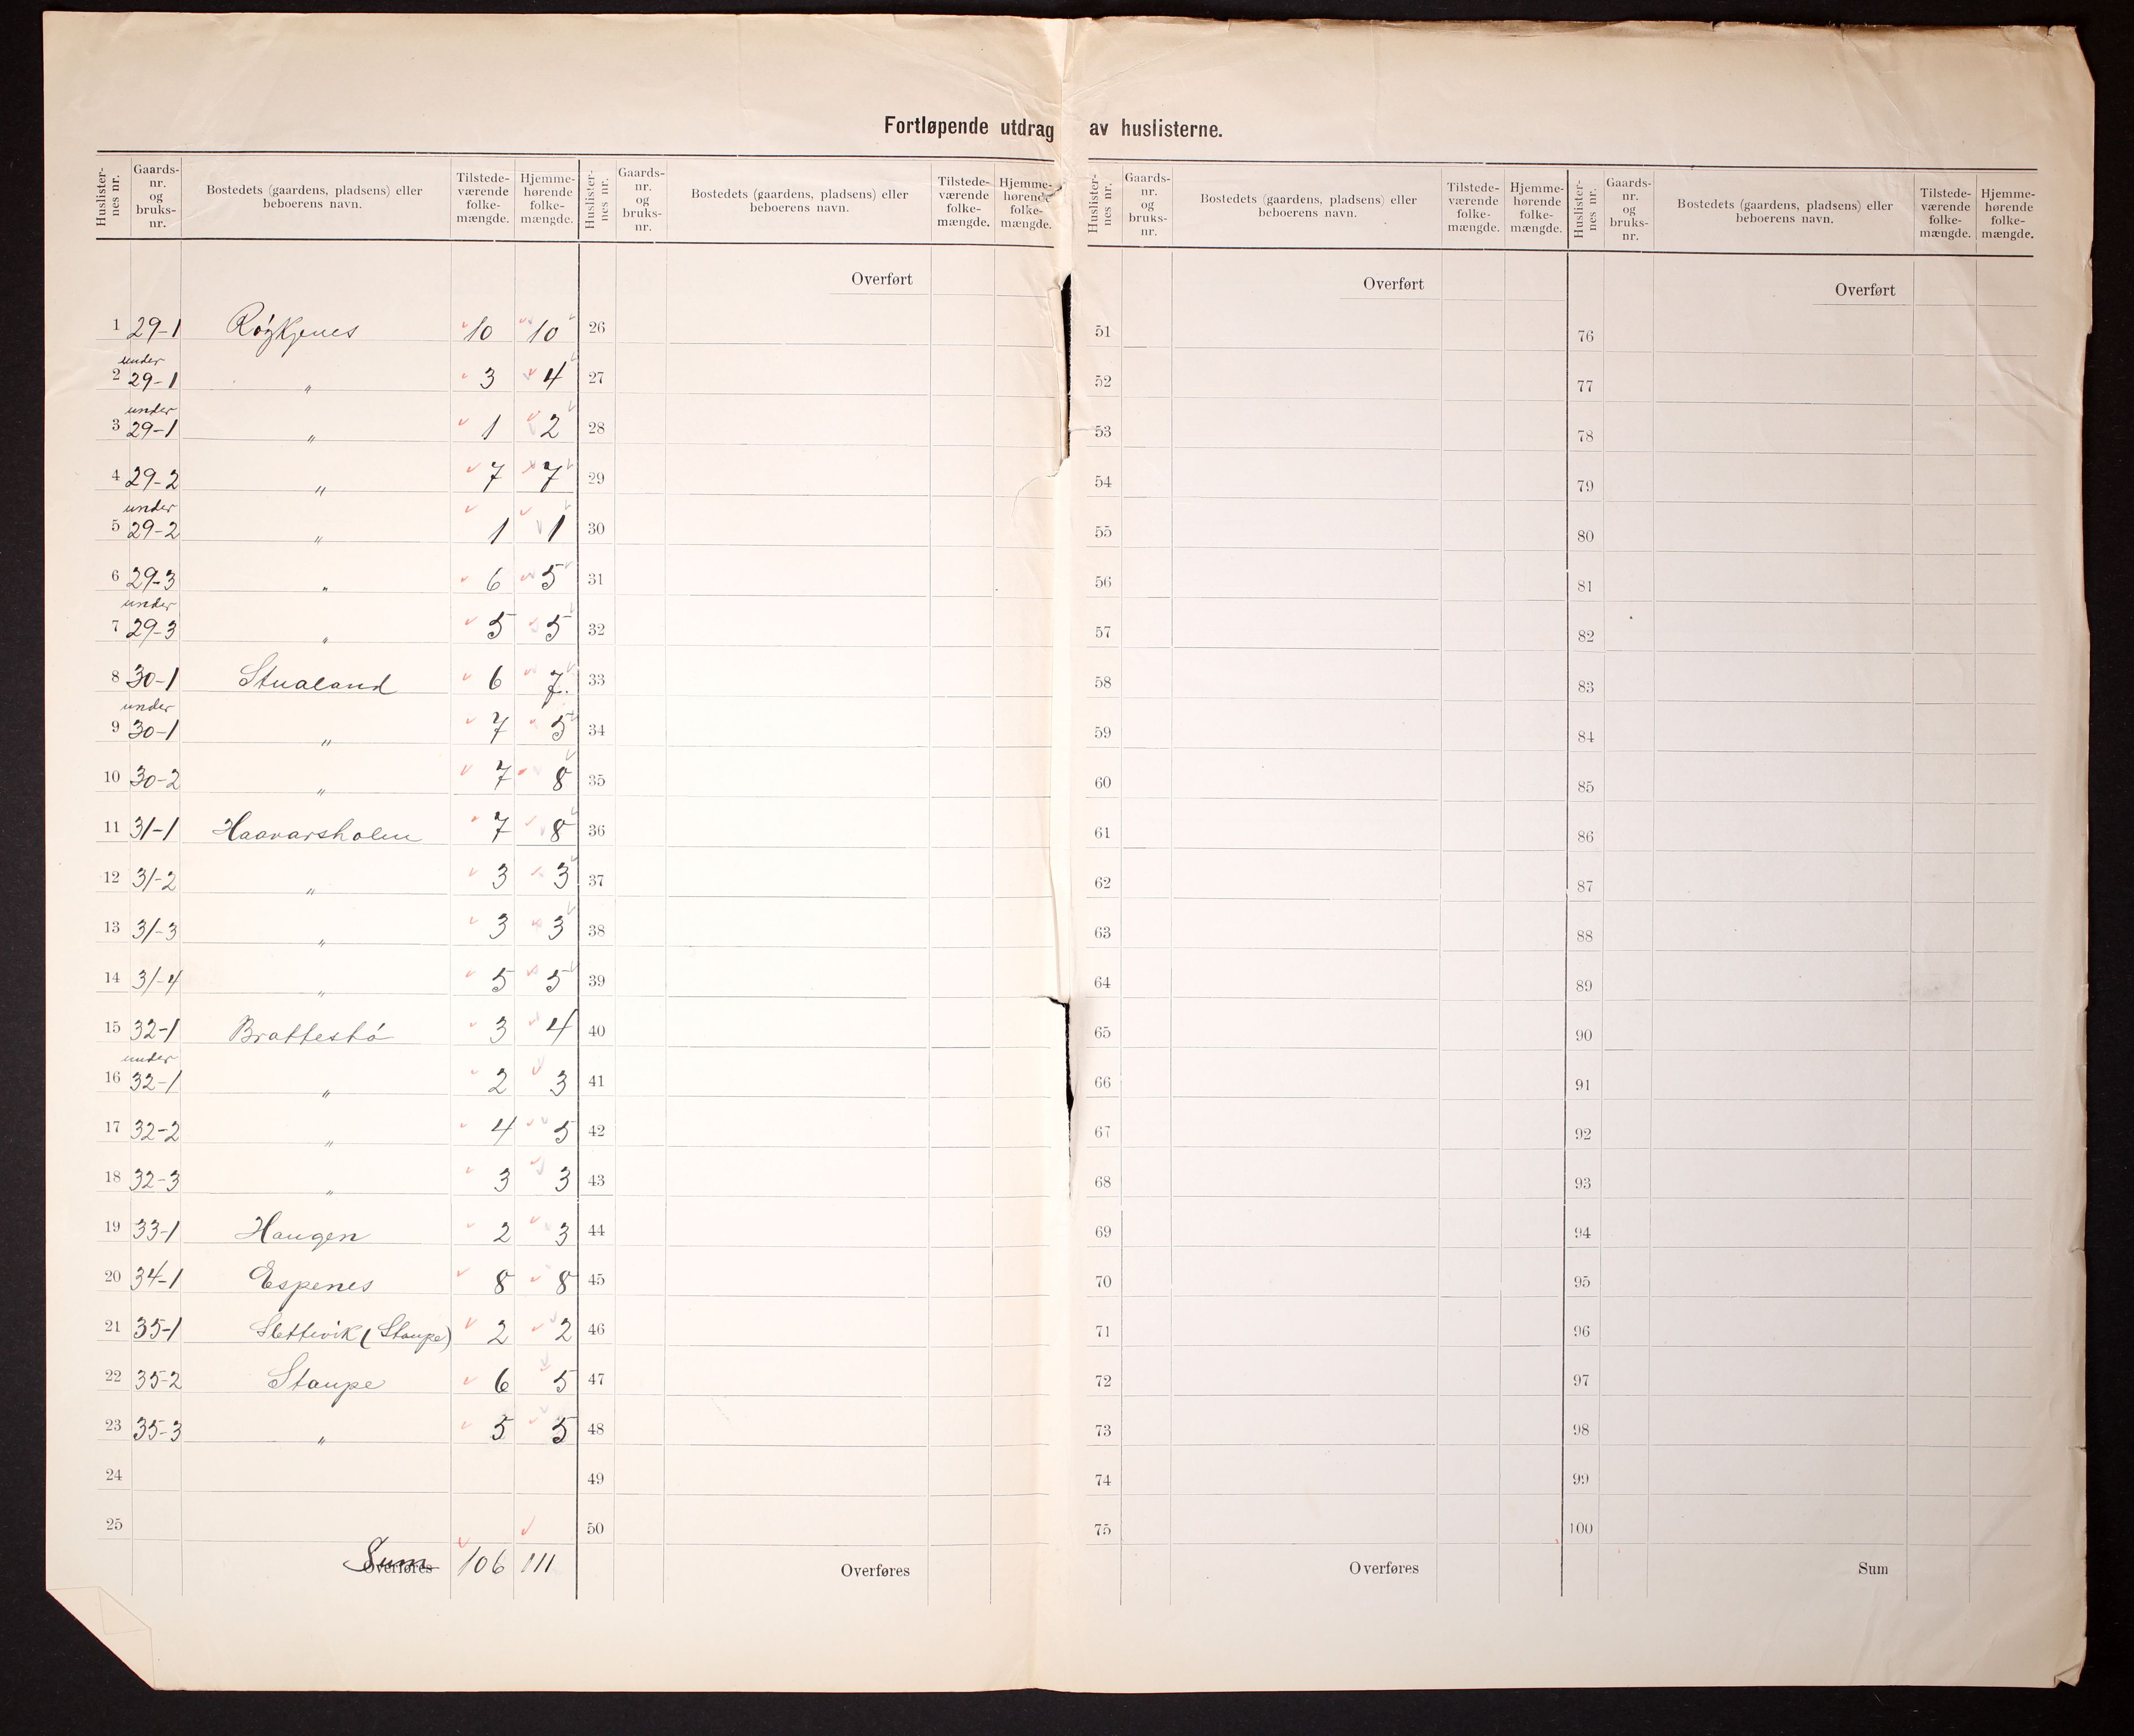 Fortløpende utdrag av huslisterne.
Huslister-nes nr. Gaards-nr. og bruks-nr. Bostedets (gaardens, pladsens) eller beboerens navn. Tilstede-værende folke-mængde. Hjemme-hørende folke-mængde.
1 29-1 Røgkjenes 10 10
under
2 29-1 " 3 4
under
3 29-1 " 1 2
4 29-2 " 7 7
under
5 29-2 " 1 1
6 29-3 " 6 5
under
7 29-3 " 5 5
8 30-1 Stualand 6 7.
under
9 30-1 " 7 5
10 30-2 " 7 8
11 31-1 Haavarsholm 7 8
12 31-2 " 3 3
13 31-3 " 3 3
14 31-4 " 5 5
15 32-1 Brattestø 3 4
under
16 32-1 " 2 3
17 32-2 " 4 5
18 32-3 " 3 3
19 33-1 Haugen 2 3
20 34-1 Espenes 8 8
21 35-1 Slettevik (Staupe) 2 2
22 35-2 Staupe 6 5
23 35-3 " 5 5
24
25
Overføres Sum 106 111
Huslister-nes nr. Gaards-nr. og bruks-nr. Bostedets (gaardens, pladsens) eller beboerens navn. Tilstede-værende folke-mængde. Hjemme-hørende folke-mængde.
Overført
26
27
28
29
30
31
32
33
34
35
36
37
38
39
40
41
42
43
44
45
46
47
48
49
50
Overføres
Huslister-nes nr. Gaards-nr. og bruks-nr. Bostedets (gaardens, pladsens) eller beboerens navn. Tilstede-værende folke-mængde. Hjemme-hørende folke-mængde.
Overført
51
52
53
54
55
56
57
58
59
60
61
62
63
64
65
66
67
68
69
70
71
72
73
74
75
Overføres
Huslister-nes nr. Gaards-nr. og bruks-nr. Bostedets (gaardens, pladsens) eller beboerens navn. Tilstede-værende folke-mængde. Hjemme-hørende folke-mængde.
Overført
76
77
78
79
80
81
82
83
84
85
86
87
88
89
90
91
92
93
94
95
96
97
98
99
100
Sum